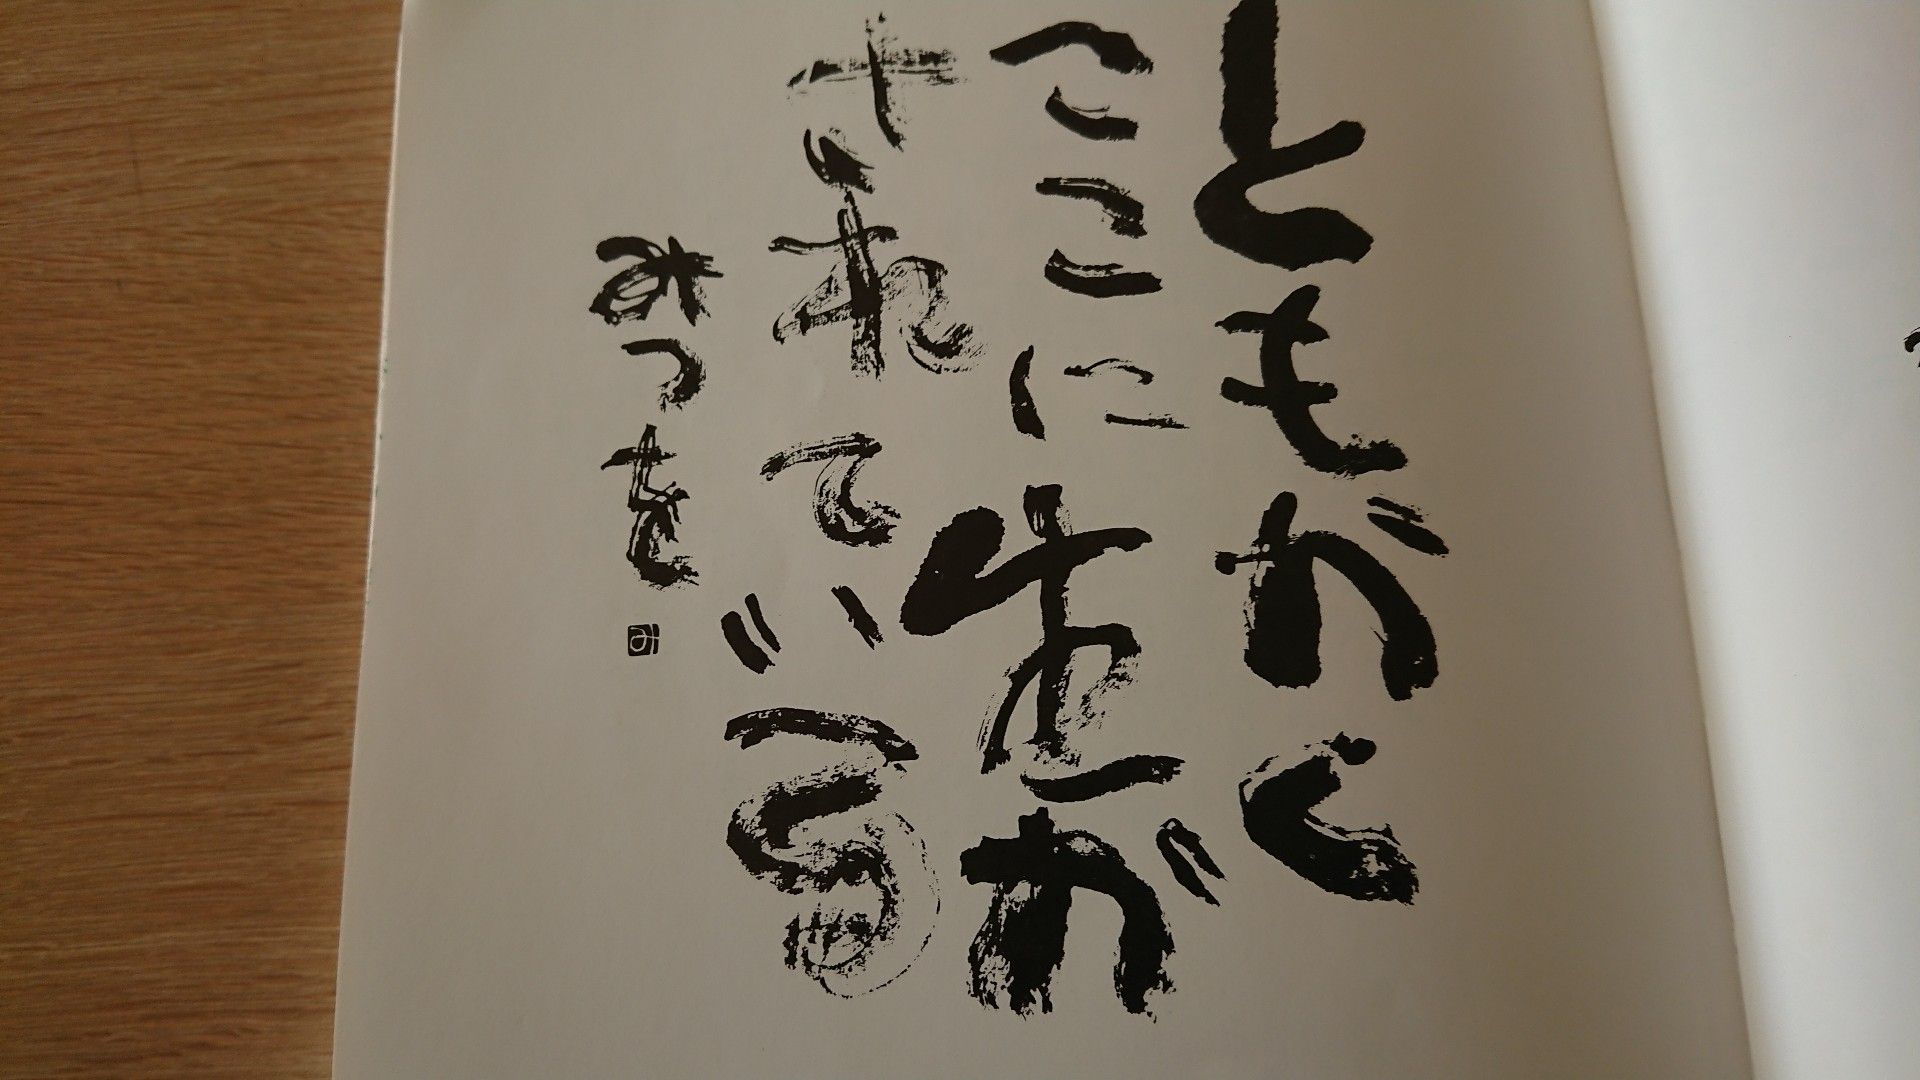 ともかく
ここに生か
されている
みつを
み